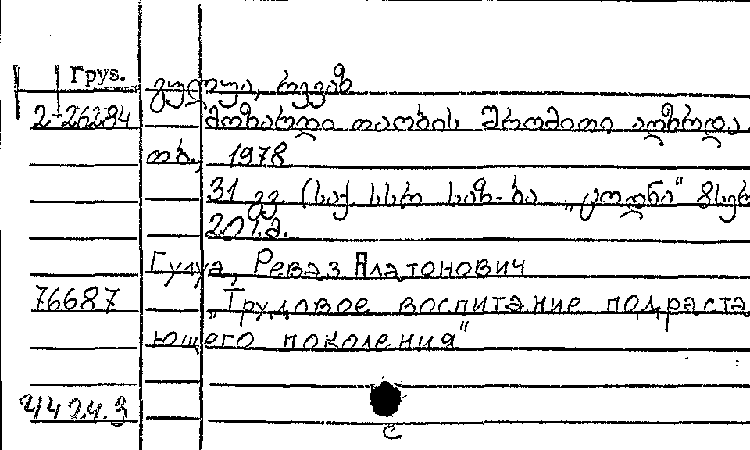 Груз.
გულუა, რევაზ
2-26284
მოზარდი თაობის შრომითი აღზრდა.
თბ., 1978
31 გვ. (საქ. სსრ საზ-ბა „ცოდნა"
20 l.მ.
Гулуа, Реваз Платонович
76687
„Трудовое воспитание подраста
ющего поколения"
44 24.3
с